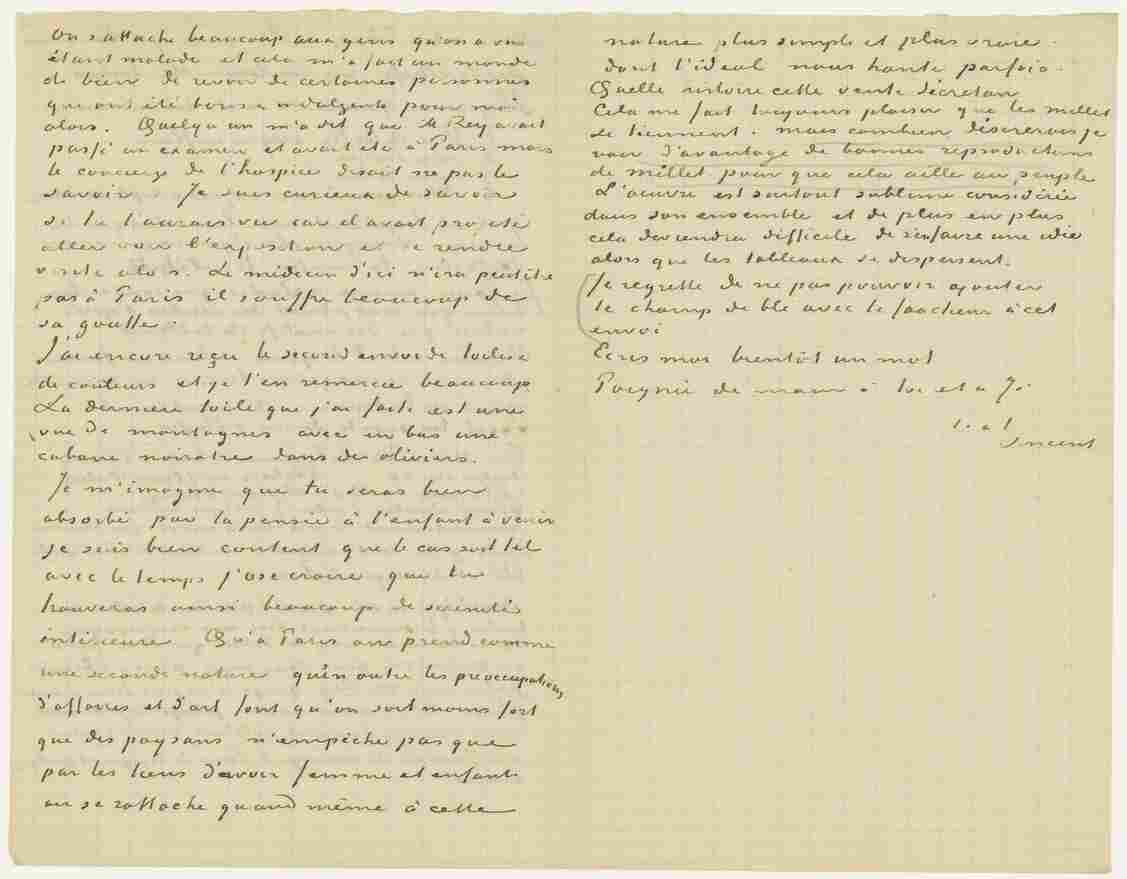 On s'attache beaucoup aux gens qu'on a vu
étant malade et cela m'a fait un monde
de bien de revoir de certaines personnes
qui ont été bons & indulgents pour moi
alors. Quelqu'un m'a dit que M Rey avait
passé un examen et avait été à Paris mais
le concierge de l'hospice disait ne pas le
savoir. Je suis curieux de savoir
si tu l'aurais vu car il avait projeté
aller voir l'exposition et te rendre
visite alors. Le médecin d'ici n'ira peutêtre
pas à Paris il souffre beaucoup de
sa goutte.
J'ai encore reçu le second envoi de toile &
de couleurs et je t'en remercie beaucoup
La dernière toile que j'ai faite est une
vue de montagnes avec en bas une
cabane noiratre dans des oliviers.
Je m'imagine que tu seras bien
absorbé par la pensée à l'enfant à venir
je suis bien content que le cas soit tel
avec le temps j'ose croire que tu
trouveras ainsi beaucoup de sérénité
intérieure. Qu'à Paris on prend comme
une seconde nature qu'en outre les préoccupations
d'affaires et d'art font qu'on soit moins fort
que des paysans n'empêche pas que
par les liens d'avoir femme et enfant
on se rattache quand même à cette
nature plus simple et plus vraie
dont l'idéal nous hante parfois.
Quelle histoire cette vente Sécretan
Cela me fait toujours plaisir que les Millet
se tiennent. Mais combien désirerais je
voir d'avantage de bonnes reproductions
de Millet pour que cela aille au peuple
L'oeuvre est surtout sublime considérée
dans son ensemble et de plus en plus
cela deviendra difficile de s'en faire une idée
alors que les tableaux se dispersent.
Je regrette de ne pas pouvoir ajouter
le champ de blé avec le faucheur à cet
envoi
Ecris moi bientôt un mot
Poignée de main à toi et à J.
t. à t
Vincent